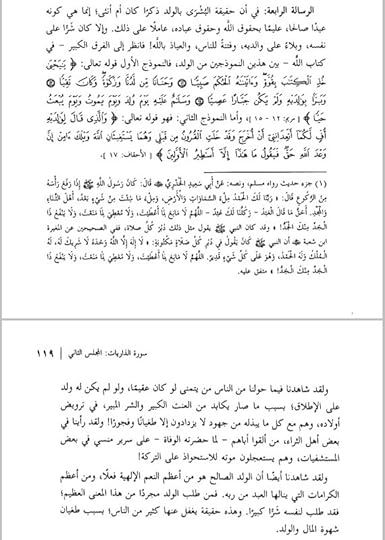 الرسالة الرابعة: في أن حقيقة البُشْرَى بالولد ذكرًا كان أم أنثى؛ إنما هي كونه
عبدًا صالحا، عليمًا بحقوق اللَّه وحقوق عباده، عاملًا على ذلك. وإلا كان شرًّا على
نفسه، وبلاءً على والديه، وفتنة للناس، والعياذ باللَّه! فانظر إلى الفرق الكبير – في
كتاب اللَّه – بين هذين النموذجين من الولد، فالنموذج الأول قوله تعالى: ﴿ يَيَحْيَىٰ
خُذِ ٱلْكِتَٰبَ بِقُوَّةٍ ۖ وَءَاتَيْنَٰهُ ٱلْحُكْمَ صَبِيًّا ۝ وَحَنَانًا مِّن لَّدُنَّا وَزَكَوٰةً ۖ وَكَانَ تَقِيًّا ۝
وَبَرًّۢا بِوَٰلِدَيْهِ وَلَمْ يَكُن جَبَّارًا عَصِيًّا ۝ وَسَلَٰمٌ عَلَيْهِ يَوْمَ وُلِدَ وَيَوْمَ يَمُوتُ وَيَوْمَ يُبْعَثُ
حَيًّا ﴾ [مريم: ١٢ – ١٥]، وأما النموذج الثاني: فهو قوله تعالى: ﴿ وَٱلَّذِى قَالَ لِوَٰلِدَيْهِ
أُفٍّ لَّكُمَآ أَتَعِدَانِنِىٓ أَنْ أُخْرَجَ وَقَدْ خَلَتِ ٱلْقُرُونُ مِن قَبْلِى وَهُمَا يَسْتَغِيثَانِ ٱللَّهَ وَيْلَكَ ءَامِنْ إِنَّ
وَعْدَ ٱللَّهِ حَقٌّ فَيَقُولُ مَا هَٰذَآ إِلَّآ أَسَٰطِيرُ ٱلْأَوَّلِينَ ﴾ [الأحقاف: ١٧].
(١) جزء حديث رواه مسلم، ونصه: عَنْ أَبِي سَعِيدٍ الْخُدْرِيِّ ﷺ قَالَ: كَانَ رَسُولُ اللَّهِ ﷺ إِذَا رَفَعَ رَأْسَهُ
مِنَ الرُّكُوعِ قَالَ: « رَبَّنَا لَكَ الْحَمْدُ مِلْءَ السَّمَاوَاتِ وَالْأَرْضِ، وَمِلْءَ مَا شِئْتَ مِنْ شَيْءٍ بَعْدُ، أَهْلَ الثَّنَاءِ
وَالْمَجْدِ، أَحَقُّ مَا قَالَ الْعَبْدُ – وَكُلُّنَا لَكَ عَبْدٌ – اللَّهُمَّ لَا مَانِعَ لِمَا أَعْطَيْتَ، وَلَا مُعْطِيَ لِمَا مَنَعْتَ، وَلَا يَنْفَعُ ذَا
الْجَدِّ مِنْكَ الْجَدُّ! » وقد كان النبي ﷺ يقول مثل ذلك دُبُرَ كل صلاة، ففي الصحيحين عن المغيرة
ابن شعبة ﷺ أن النبي ﷺ كَانَ يَقُولُ فِي دُبُرِ كُلِّ صَلَاةٍ مَكْتُوبَةٍ: « لَا إِلَهَ إِلَّا اللَّهُ وَحْدَهُ لَا شَرِيكَ لَهُ، لَهُ
الْمُلْكُ وَلَهُ الْحَمْدُ، وَهُوَ عَلَى كُلِّ شَيْءٍ قَدِيرٌ، اللَّهُمَّ لَا مَانِعَ لِمَا أَعْطَيْتَ، وَلَا مُعْطِيَ لِمَا مَنَعْتَ، وَلَا يَنْفَعُ ذَا
الْجَدِّ مِنْكَ الْجَدُّ! » متفق عليه.
سورة الذاريات: المجلس الثاني ١١٩
ولقد شاهدنا فيما حولنا من الناس من يتمنى لو كان عقيمًا، ولو لم يكن له ولد
على الإطلاق؛ بسبب ما صار يكابد من العنت الكبير والشر المبير، في ترويض
أولاده، وهم مع كل ما يبذله من جهود لا يزدادون إلا طغيانًا وفجورًا! ولقد رأينا في
بعض أهل الثراء، من ألقوا أباهم – لما حضرته الوفاة – على سرير منسي في بعض
المستشفيات، وهم يستعجلون موته للاستحواذ على التركة!
ولقد شاهدنا أيضًا أن الولد الصالح هو من أعظم النعم الإلهية فعلًا، ومن أعظم
الكرامات التي ينالها العبد من ربه. فمن طلب الولد مجردًا من هذا المعنى العظيم؛
فقد طلب لنفسه شرًّا كبيرًا. وهذه حقيقة يغفل عنها كثير من الناس؛ بسبب طغيان
شهوة المال والولد.